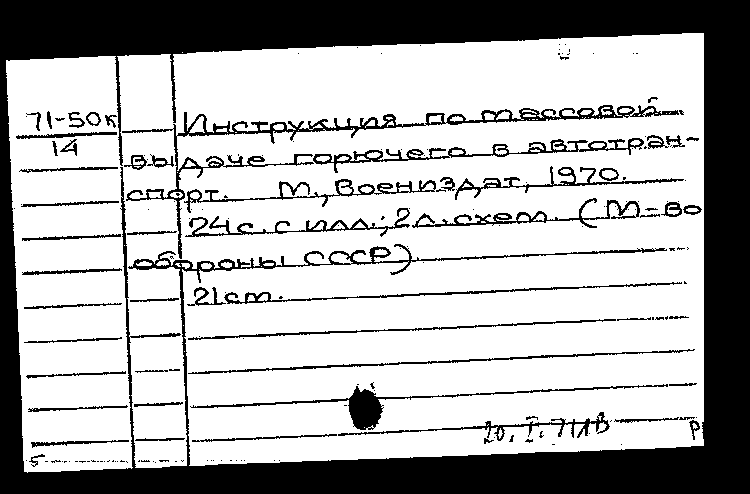 71-50к
14
Инструкция по массовой
выдаче горючего в автотран-
спорт. М., Воениздат, 1970.
24с. с илл.; 2л. схем. (М-во
обороны СССР)
21см.
20.I.71
5